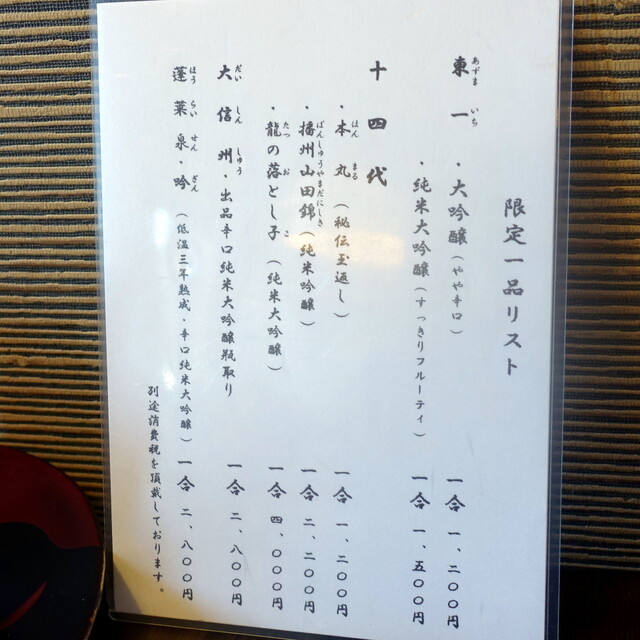 限定一品リスト
東一 ・大吟醸（やや辛口） 一合 一、二〇〇円
あずま いち
・純米大吟醸（すっきりフルーティ） 一合 一、五〇〇円
十四代
・本丸（秘伝玉返し） 一合 一、二〇〇円
ほん まる
・播州山田錦（純米吟醸） 一合 二、二〇〇円
ばんしゅうやまだにしき
・龍の落とし子（純米大吟醸） 一合 四、〇〇〇円
たつ お こ
大信州 ・出品辛口純米大吟醸瓶取り 一合 二、八〇〇円
だい しん しゅう
蓬莱泉・吟（低温三年熟成・辛口純米大吟醸） 一合 二、八〇〇円
ほう らい せん ぎん
別途消費税を頂戴しております。